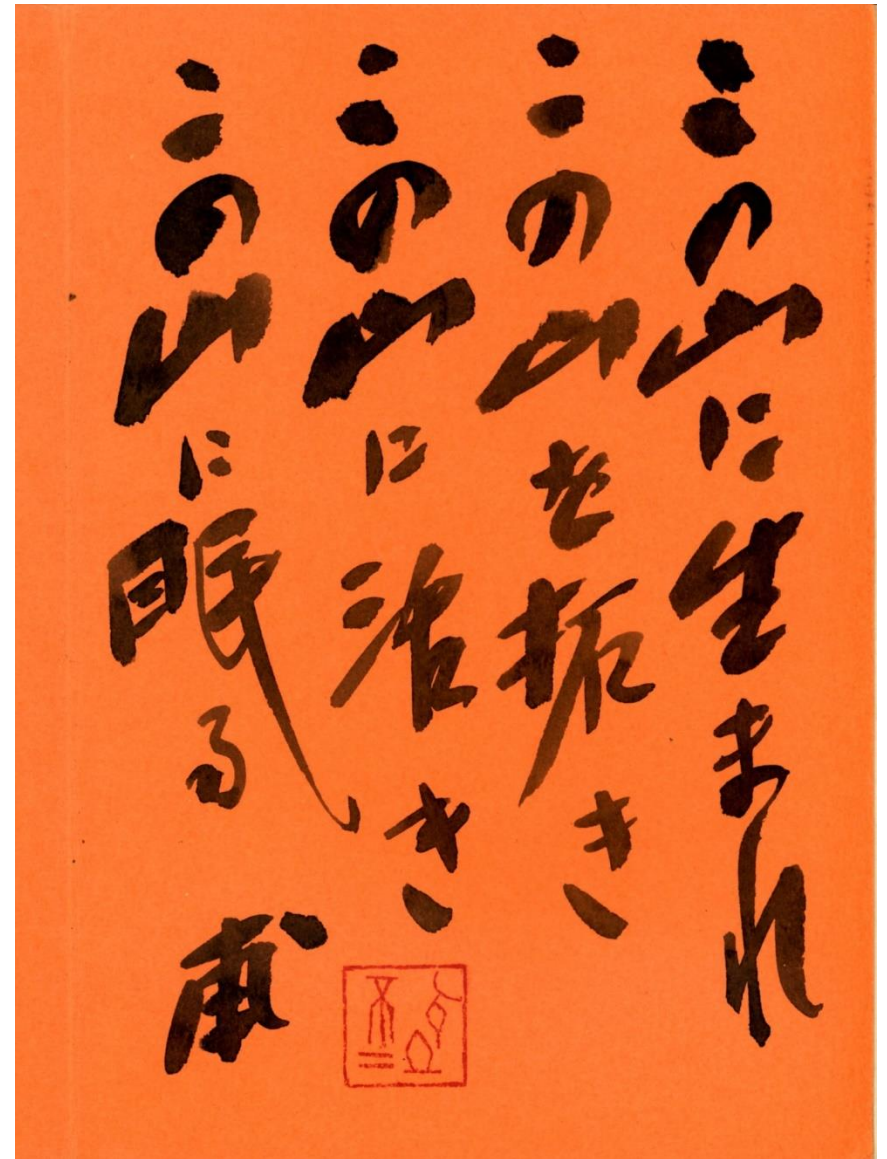 この山に生まれ
この山を拓き
この山に活き
この山に眠る